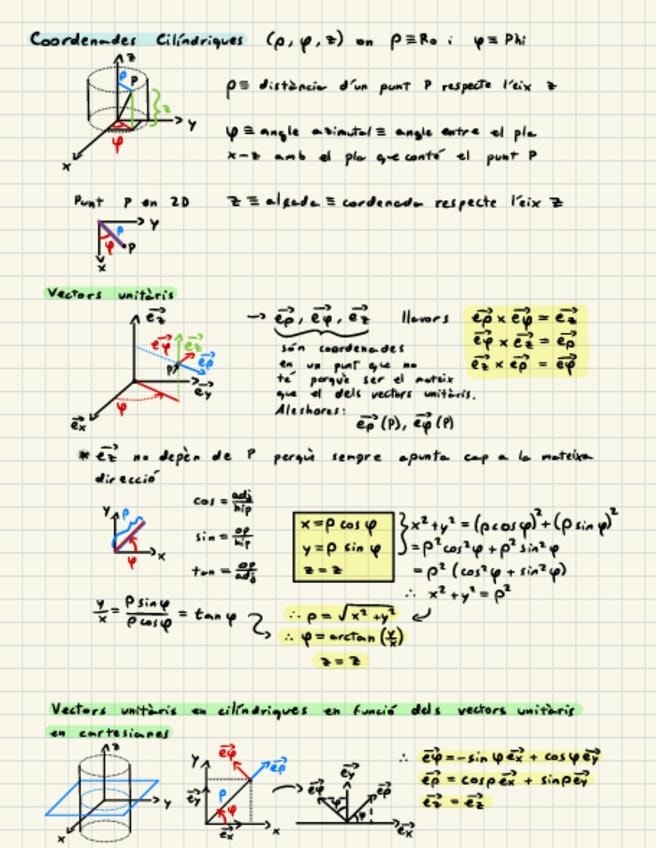 Coordenades Cilíndriques (ρ, φ, z) on ρ≡Ro i φ≡Phi
z
ρ
P
z
y
φ
x
ρ≡ distància d'un punt P respecte l'eix z
φ≡ angle azimutal ≡ angle entre el pla
x-z amb el pla que conté el punt P
Punt P en 2D
z ≡ alçada ≡ cordenada respecte l'eix z
y
ρ
φ
P
x
Vectors unitàris
→ e⃗ρ, e⃗φ, e⃗z llavors
e⃗ρ x e⃗φ = e⃗z
e⃗φ x e⃗z = e⃗ρ
e⃗z x e⃗ρ = e⃗φ
són coordenades
en un punt que no
té perquè ser el mateix
que el dels vectors unitàris.
Aleshores:
e⃗ρ(P), e⃗φ(P)
e⃗z
e⃗φ
e⃗z
e⃗ρ
P
e⃗y
φ
e⃗x
* e⃗z no depèn de P perquè sempre apunta cap a la mateixa
direcció
y
ρ
x
φ
cos = adj/hip
sin = op/hip
tan = op/adj
x = ρ cos φ
y = ρ sin φ
z = z
x²+y² = (ρcosφ)²+(ρ sinφ)²
= ρ²cos²φ + ρ² sin²φ
= ρ² (cos²φ + sin²φ)
∴ x²+y² = ρ²
y/x = ρ sinφ/ρ cosφ = tan φ
∴ ρ = √x²+y²
∴ φ = arctan (y/x)
z = z
Vectors unitàris en cilíndriques en funció dels vectors unitàris
en cartesianes
z
y
x
y
e⃗φ
e⃗ρ
ρ
e⃗y
φ
e⃗x
x
e⃗φ
e⃗y
e⃗ρ
φ
φ
e⃗x
∴ e⃗φ = -sin φ e⃗x + cosφ e⃗y
e⃗ρ = cosρ e⃗x + sinρ e⃗y
e⃗z = e⃗z